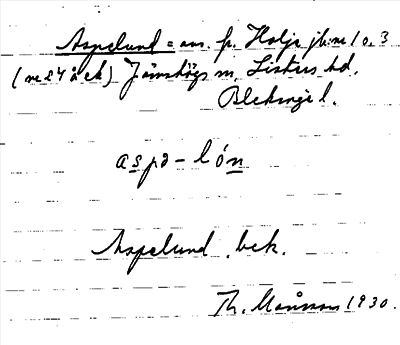 Aspelund = av. fr. Holje jb:nr 10, 3
(nr 24 å ek) Jämshögs sn, Listers hd.
Blekinge l.
aspə-lón
Aspelund, bek.
Th. Månsson 1930.